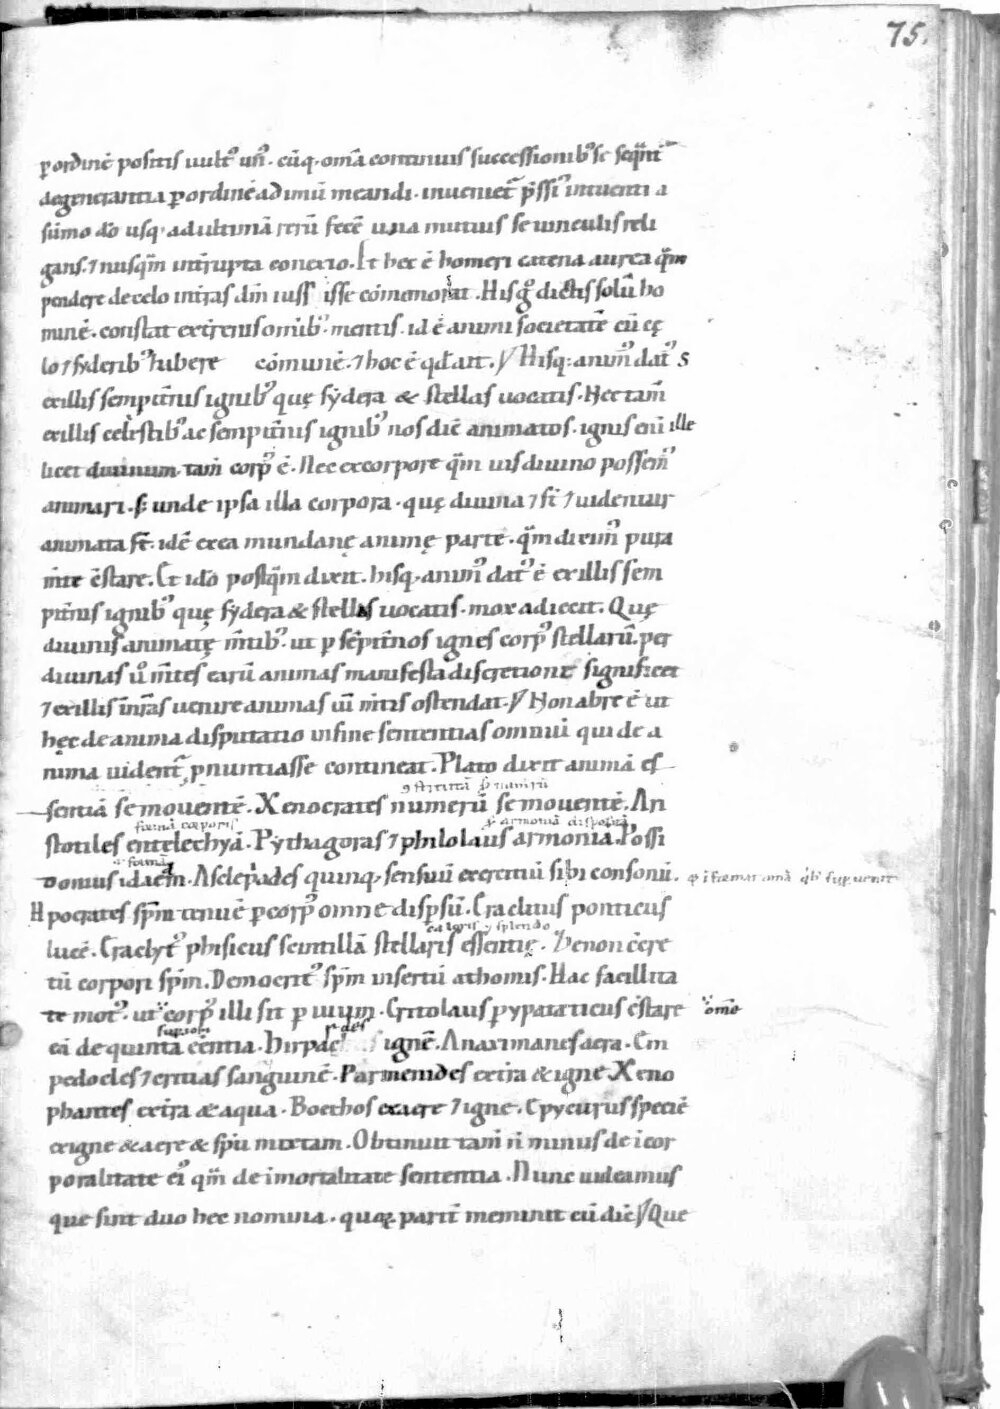 75.
p ordinē positis uult᷒ un᷒. cūq; om̄a continuis successionib᷒ se seqūnt᷒
degenerantia p ordinē ad imū meandi. inueniet᷒ p̄ssi᷒ intuenti a
sūmo dō usq; ad ultimā rerū fecē una mutuis se uinculis reli
gans. ⁊ nusq̄m int̄rupta conexio. Et hec ē homeri catena aurea q̄m
pendere de celo in t̄ras dm̄ iussisse cōmemorat. His g᷒ dictis solū ho
minē. constat ex t̄renis omib᷒ mentis. id ē animi societatē cū cę
lo ⁊ syderib᷒ habere cōmunē. ⁊ hoc ē qd̄ ait. Hisq; anim᷒ dat᷒ s
ex illis sempit̄nis ignib᷒ quę sydera & stellas uocatis. Nec tam̄
ex illis celestib᷒ ac sempit̄nis ignib᷒ nos dic̄ animatos. ignis eni᷒ ille
licet diuinum. tam̄ corp᷒ ē. Nec ex corpore q̄m uis diuino possem᷒
animari. s; unde ipsa illa corpora. quę diuina ⁊ st̄ ⁊ uidentur
animata st̄. idē ex ea mundanę animę parte. q̄m dixim᷒ pura
m̄te c̄stare. Et ido postq̄m dixit. hisq; anim᷒ dat᷒ ē ex illis sem
pit̄nis ignib᷒ quę sydera & stellas uocatis. mox adiecit. Quę
diuinis animatę m̄tib᷒. ut p sēpit̄nos ignes corp᷒ stellarū. per
diuinas u᷒ m̄tes earū animas manifesta discretione significet
⁊ ex illis in nr̄as uenire animas uī m̄tis ostendat. Non ab re ē ut
hęc de anima disputatio in fine sententias omniū qui de a
nima uident᷒ p̄nuntiasse contineat. Plato dixit animā es
sentiā se mouentē. Xenocrates numerū se mouentē. Ari
formā corporis
stotiles entelechyā. Pythagoras ⁊ philolaus armoniā. Possi
formā
donius idaem. Asclepiades quinq; sensuū exercitiū sibi consonū.
Hpocrates sp̄m tenuē p corp᷒ omne disp̄sū. Eraclitus ponticus
lucē. Eraclyt᷒ phisicus scintillā stellaris essentię. Zenon c̄cre
tū corpori sp̄m. Democrit᷒ sp̄m insertū athomis. Hac facilita
te mot᷒. ut corp᷒ illi sit p uiuum. Critolaus pypatetticus c̄stare omē
eā de quinta ēentia. Hirparchus ignē. Anaximanes aera. Em
pedocles ⁊ critias sanguinē. Parmenides ex t̄ra & igne. Xeno
phantes ex t̄ra & aqua. Boethos ex aere ⁊ igne. Epycurus speciē
ex igne & aere & sp̄u mixtam. Obtinuit tam̄ n̄ minus de icor
poralitate ei᷒ q̄m de imortalitate sententia. Nunc uideamus
que sint duo hec nomina. quoꝝ parit̄ meminit cū dic̄ Que